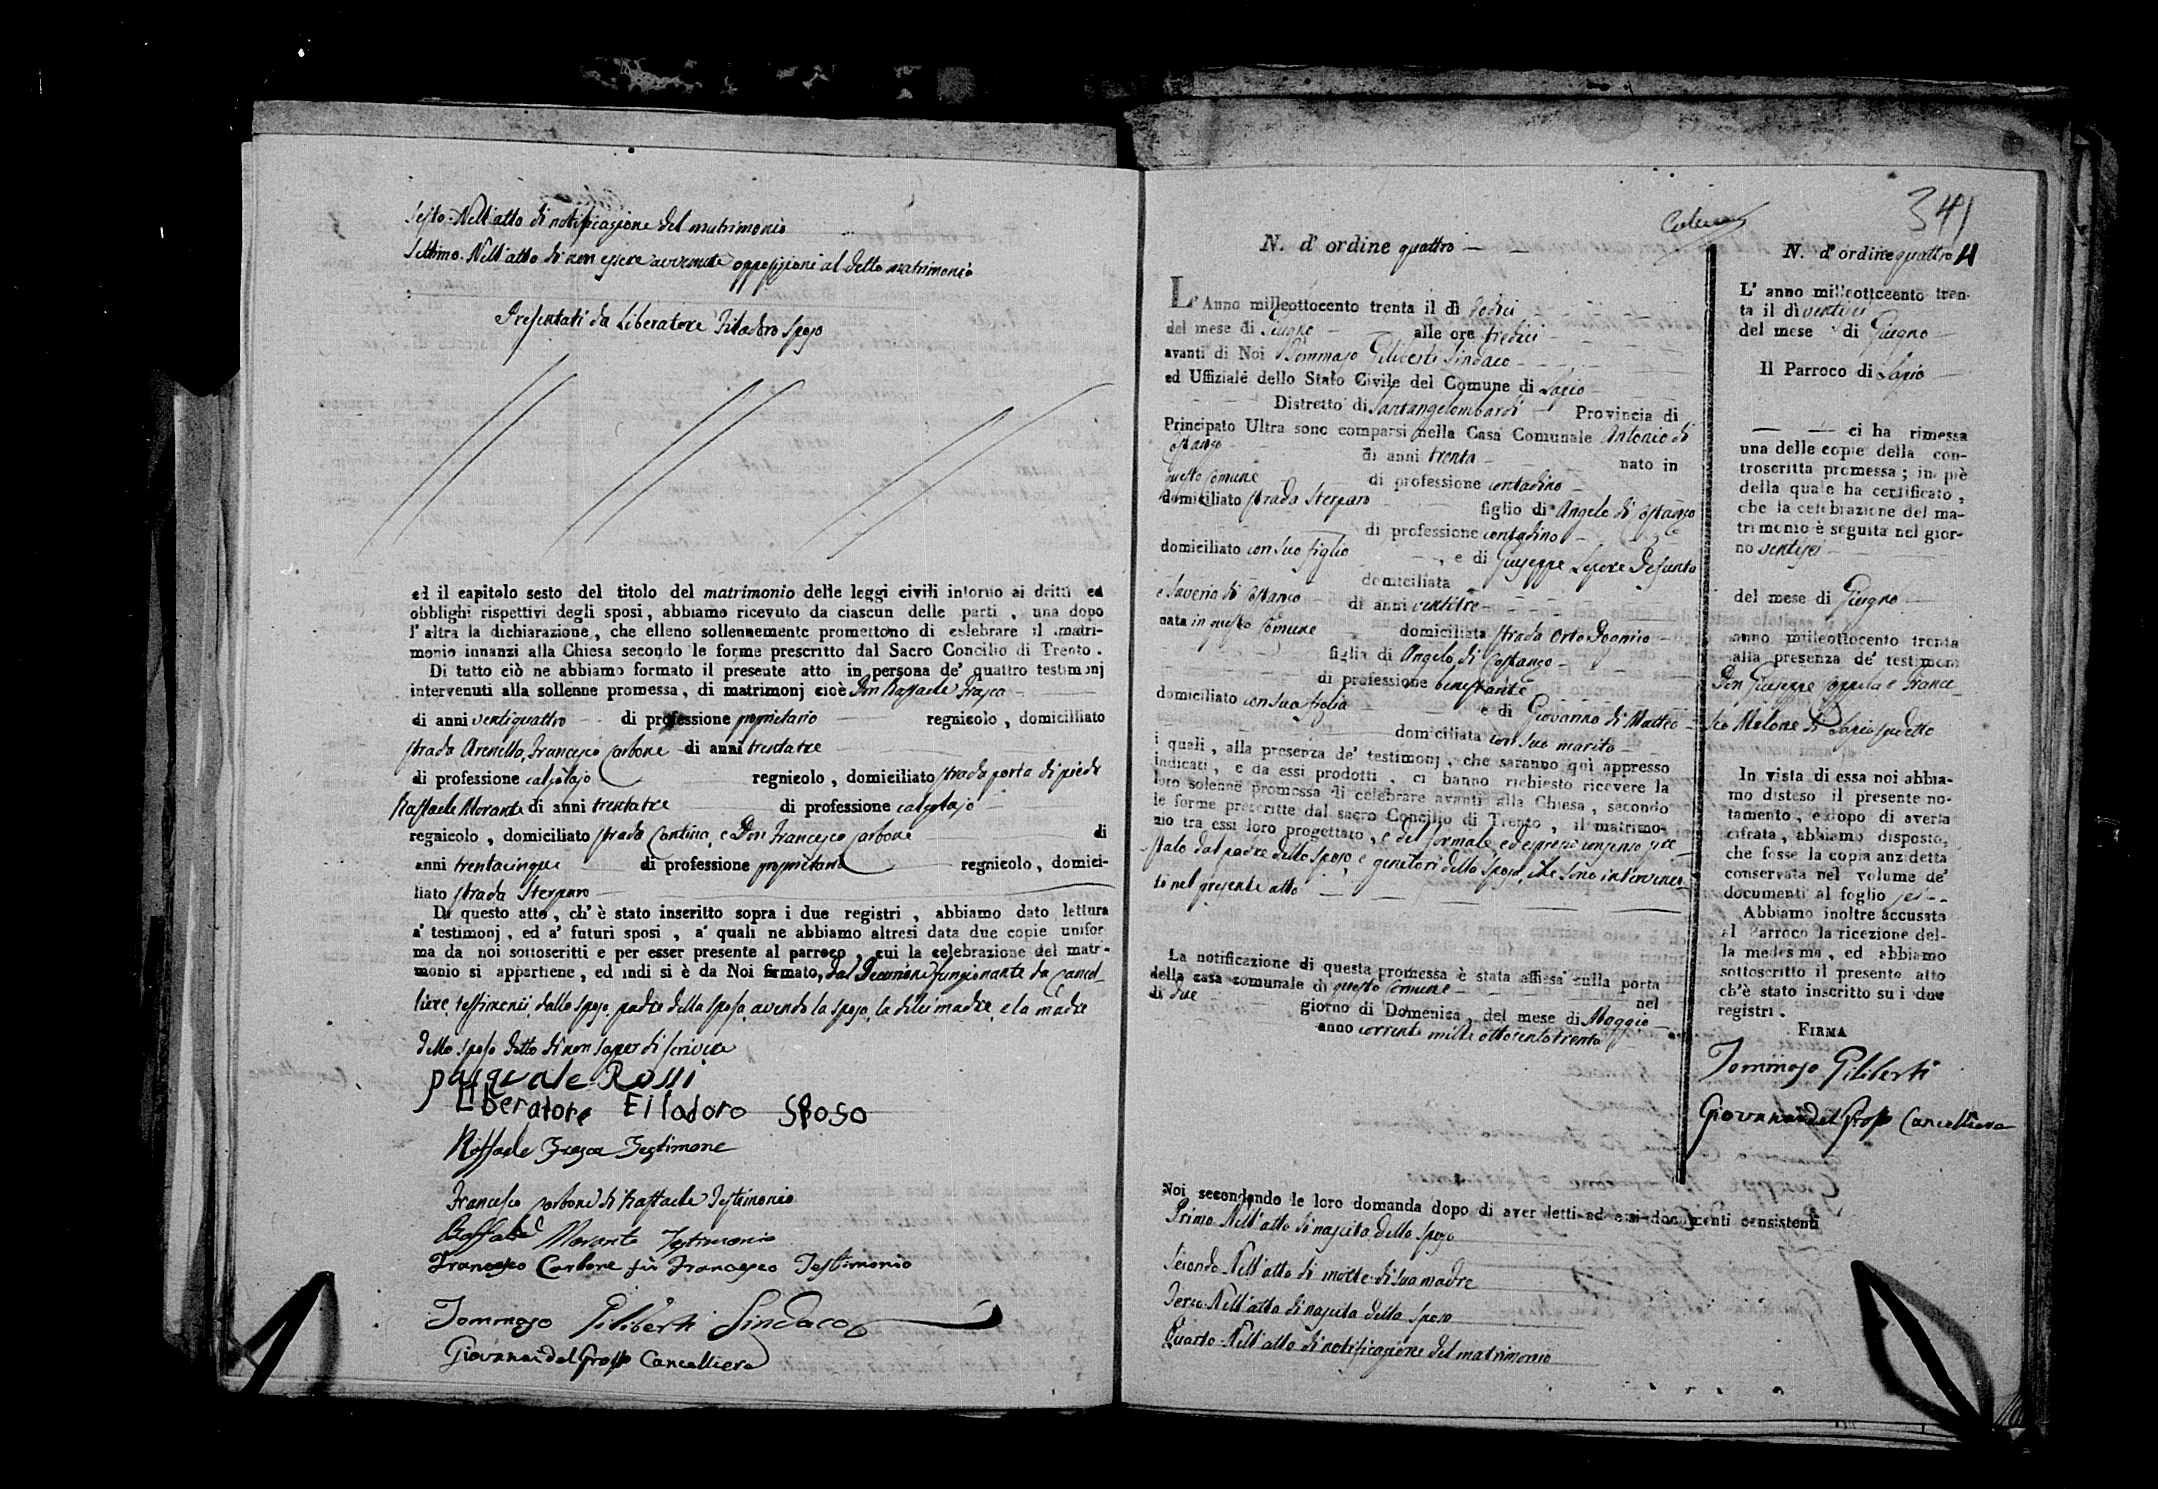 Sesto. Nell'atto di notificazione del matrimonio
Settimo. Nell'atto di non essere avvenute opposizioni al detto matrimonio
Presentati da Liberatore Filadoro sposo
ed il capitolo sesto del titolo del matrimonio delle leggi civili intorno ai dritti ed
obblighi rispettivi degli sposi, abbiamo ricevuto da ciascun delle parti, una dopo
l'altra la dichiarazione, che elleno sollennemente promettono di celebrare il matri-
monio innanzi alla Chiesa secondo le forme prescritto dal Sacro Concilio di Trento.
Di tutto ciò ne abbiamo formato il presente atto in persona de' quattro testimonj
intervenuti alla sollenne promessa, di matrimonj cioè Don Raffaele Frasca
di anni ventiquattro di professione proprietario regnicolo, domicilliato
strada Arenella, Francesco Carbone di anni trentatre
di professione calzolajo regnicolo, domiciliato strada porta di piedi
Raffaele Morante di anni trentatre di professione calzolajo
regnicolo, domiciliato strada Cantina, e Don Francesco Carbone di
anni trentacinque di professione proprietario regnicolo, domici-
liato strada Sterparo
Di questo atto, ch'è stato inseritto sopra i due registri, abbiamo dato lettura
a' testimonj, ed a' futuri sposi, a' quali ne abbiamo altresi data due copie unifor
ma da noi sottoscritti e per esser presente al parroco, cui la celebrazione del matri-
monio si appartiene, ed indi si è da Noi firmato, dal Decurione funzionante da Cancel-
liere, testimonii, dallo sposo, padre della sposa, avendo la sposa, la di lei madre, e la madre
dello sposo detto di non saper di scrivere
pasquale Rossi
Liberatore Filadoro Sposo
Raffaele Frasca Testimone
Francesco Carbone di Raffaele Testimonio
Raffaele Morante Testimonio
Francesco Carbone fù Francesco Testimonio
Tommaso Piliberti Sindaco
Giovanni del Grosso Cancelliere
341
N. d'ordine quattro
L'Anno milleottocento trenta il dì dodici
del mese di Giugno alle ore tredici
avanti di Noi Tommaso Piliberti Sindaco
ed Uffiziale dello Stato Civile del Comune di Lapio
Distretto di Santangelombardi Provincia di
Principato Ultra sono comparsi nella Casa Comunale Antonio di
Costanzo di anni trenta nato in
questo Comune di professione contadino
domiciliato strada Sterparo figlio di Angelo di Costanzo
di professione contadino
domiciliato con suo figlio, e di Giuseppa Lepore Defunta
domiciliata
e Saveria di Costanzo di anni ventitre
nata in questo Comune domiciliata strada Orto Dognio
figlia di Angelo di Costanzo
di professione benestante
domiciliato con sua figlia e di Giovanna di Matteo
domiciliata con suo marito
i quali, alla presenza de' testimonj, che saranno quì appresso
indicati, e da essi prodotti, ci hanno richiesto ricevere la
loro solenne promessa di celebrare avanti alla Chiesa, secondo
le forme prescritte dal sacro Concilio di Trento, il matrimo-
nio tra essi loro progettato, e del formale ed espresso consenso pre-
stato dal padre dello sposo, e genitori della sposa, che sono intervenu-
to nel presente atto
La notificazione di questa promessa è stata affissa sulla porta
della casa comunale di questo Comune nel
di due giorno di Domenica, del mese di Maggio
anno corrente mille ottocentotrenta
Noi secondando le loro domanda dopo di aver letti ad essi documenti consistenti
Primo. Nell'atto di nascita dello sposo
Secondo. Nell'atto di morte di sua madre
Terzo. Nell'atto di nascita della sposa
Quarto. Nell'atto di notificazione del matrimonio
N. d'ordine quattro 4
L'anno milleottcento tren-
ta il dì ventisei
del mese di Giugno
Il Parroco di Lapio
ci ha rimessa
una delle copie della con-
troscritta promessa; in piè
della quale ha certificato,
che la celebrazione del ma-
trimonio è seguita nel gior-
no ventisei
del mese di Giugno
anno milleottocento trenta
alla presenza de' testimoni
Don Giuseppe Coppola e France-
sco Melone di Lapio sudetto
In vista di essa noi abbia-
mo disteso il presente no-
tamento, e dopo di averla
cifrata, abbiamo disposto,
che fosse la copia anzidetta
conservata nel volume de'
documenti al foglio sei
Abbiamo inoltre accusata
al Parroco la ricezione del-
la medesma, ed abbiamo
sottoscritto il presente atto
ch'è stato inscritto su i due
registri.
FIRMA
Tommaso Piliberti
Giovanni del Grosso Cancelliere